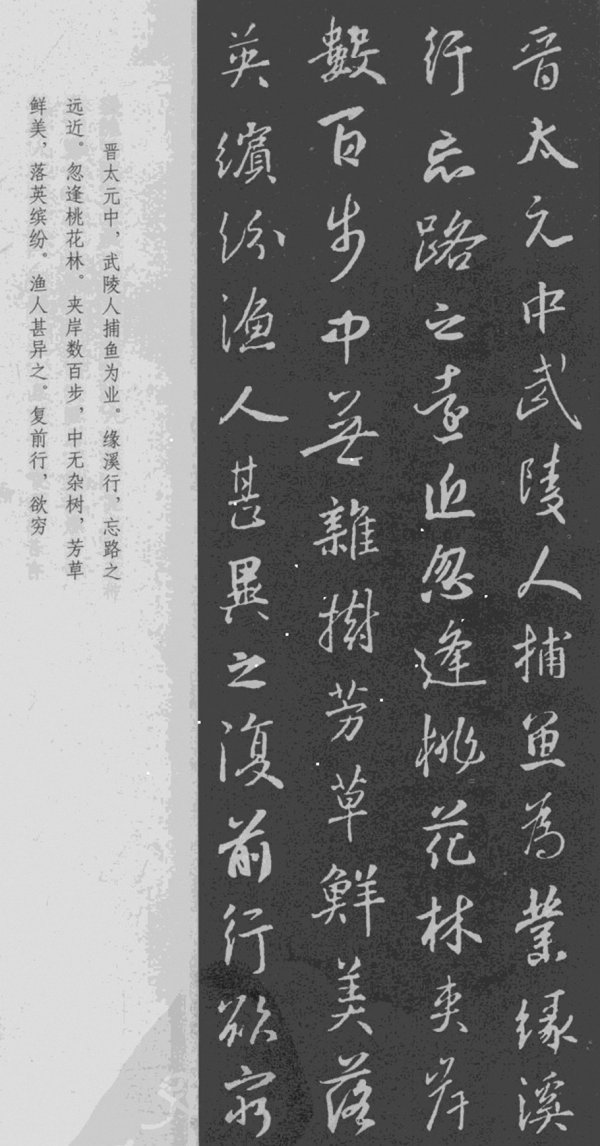 晋太元中武陵人捕魚為業緣溪
行忘路之遠近忽逢桃花林夹岸
數百步中無雜樹芳草鮮美落
英繽紛漁人甚異之復前行欲窮
晋太元中，武陵人捕鱼为业。缘溪行，忘路之
远近。忽逢桃花林。夹岸数百步，中无杂树，芳草
鲜美，落英缤纷。渔人甚异之。复前行，欲穷